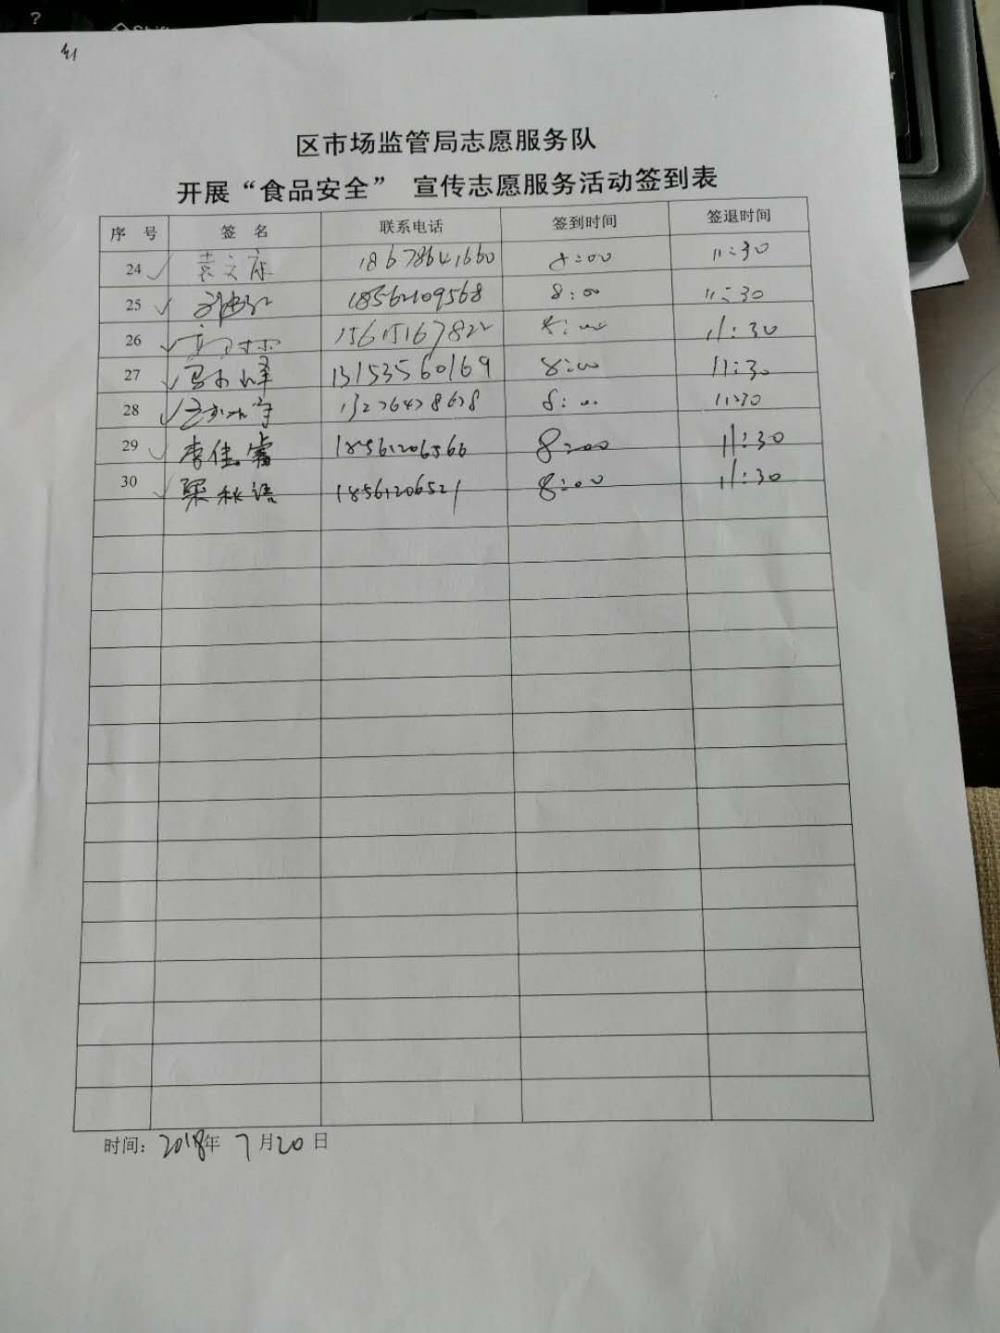 区市场监管局志愿服务队
开展“食品安全” 宣传志愿服务活动签到表
序 号 签 名 联系电话 签到时间 签退时间
24 袁文康 18678641660 8:00 11:30
25 18562109568 8:00 11:30
26 15615167822 8:00 11:30
27 13153560169 8:00 11:30
28 13276478678 8:00 11:30
29 李佳睿 18561206566 8:00 11:30
30 梁秋语 18561206521 8:00 11:30
时间：2018年 7月20日